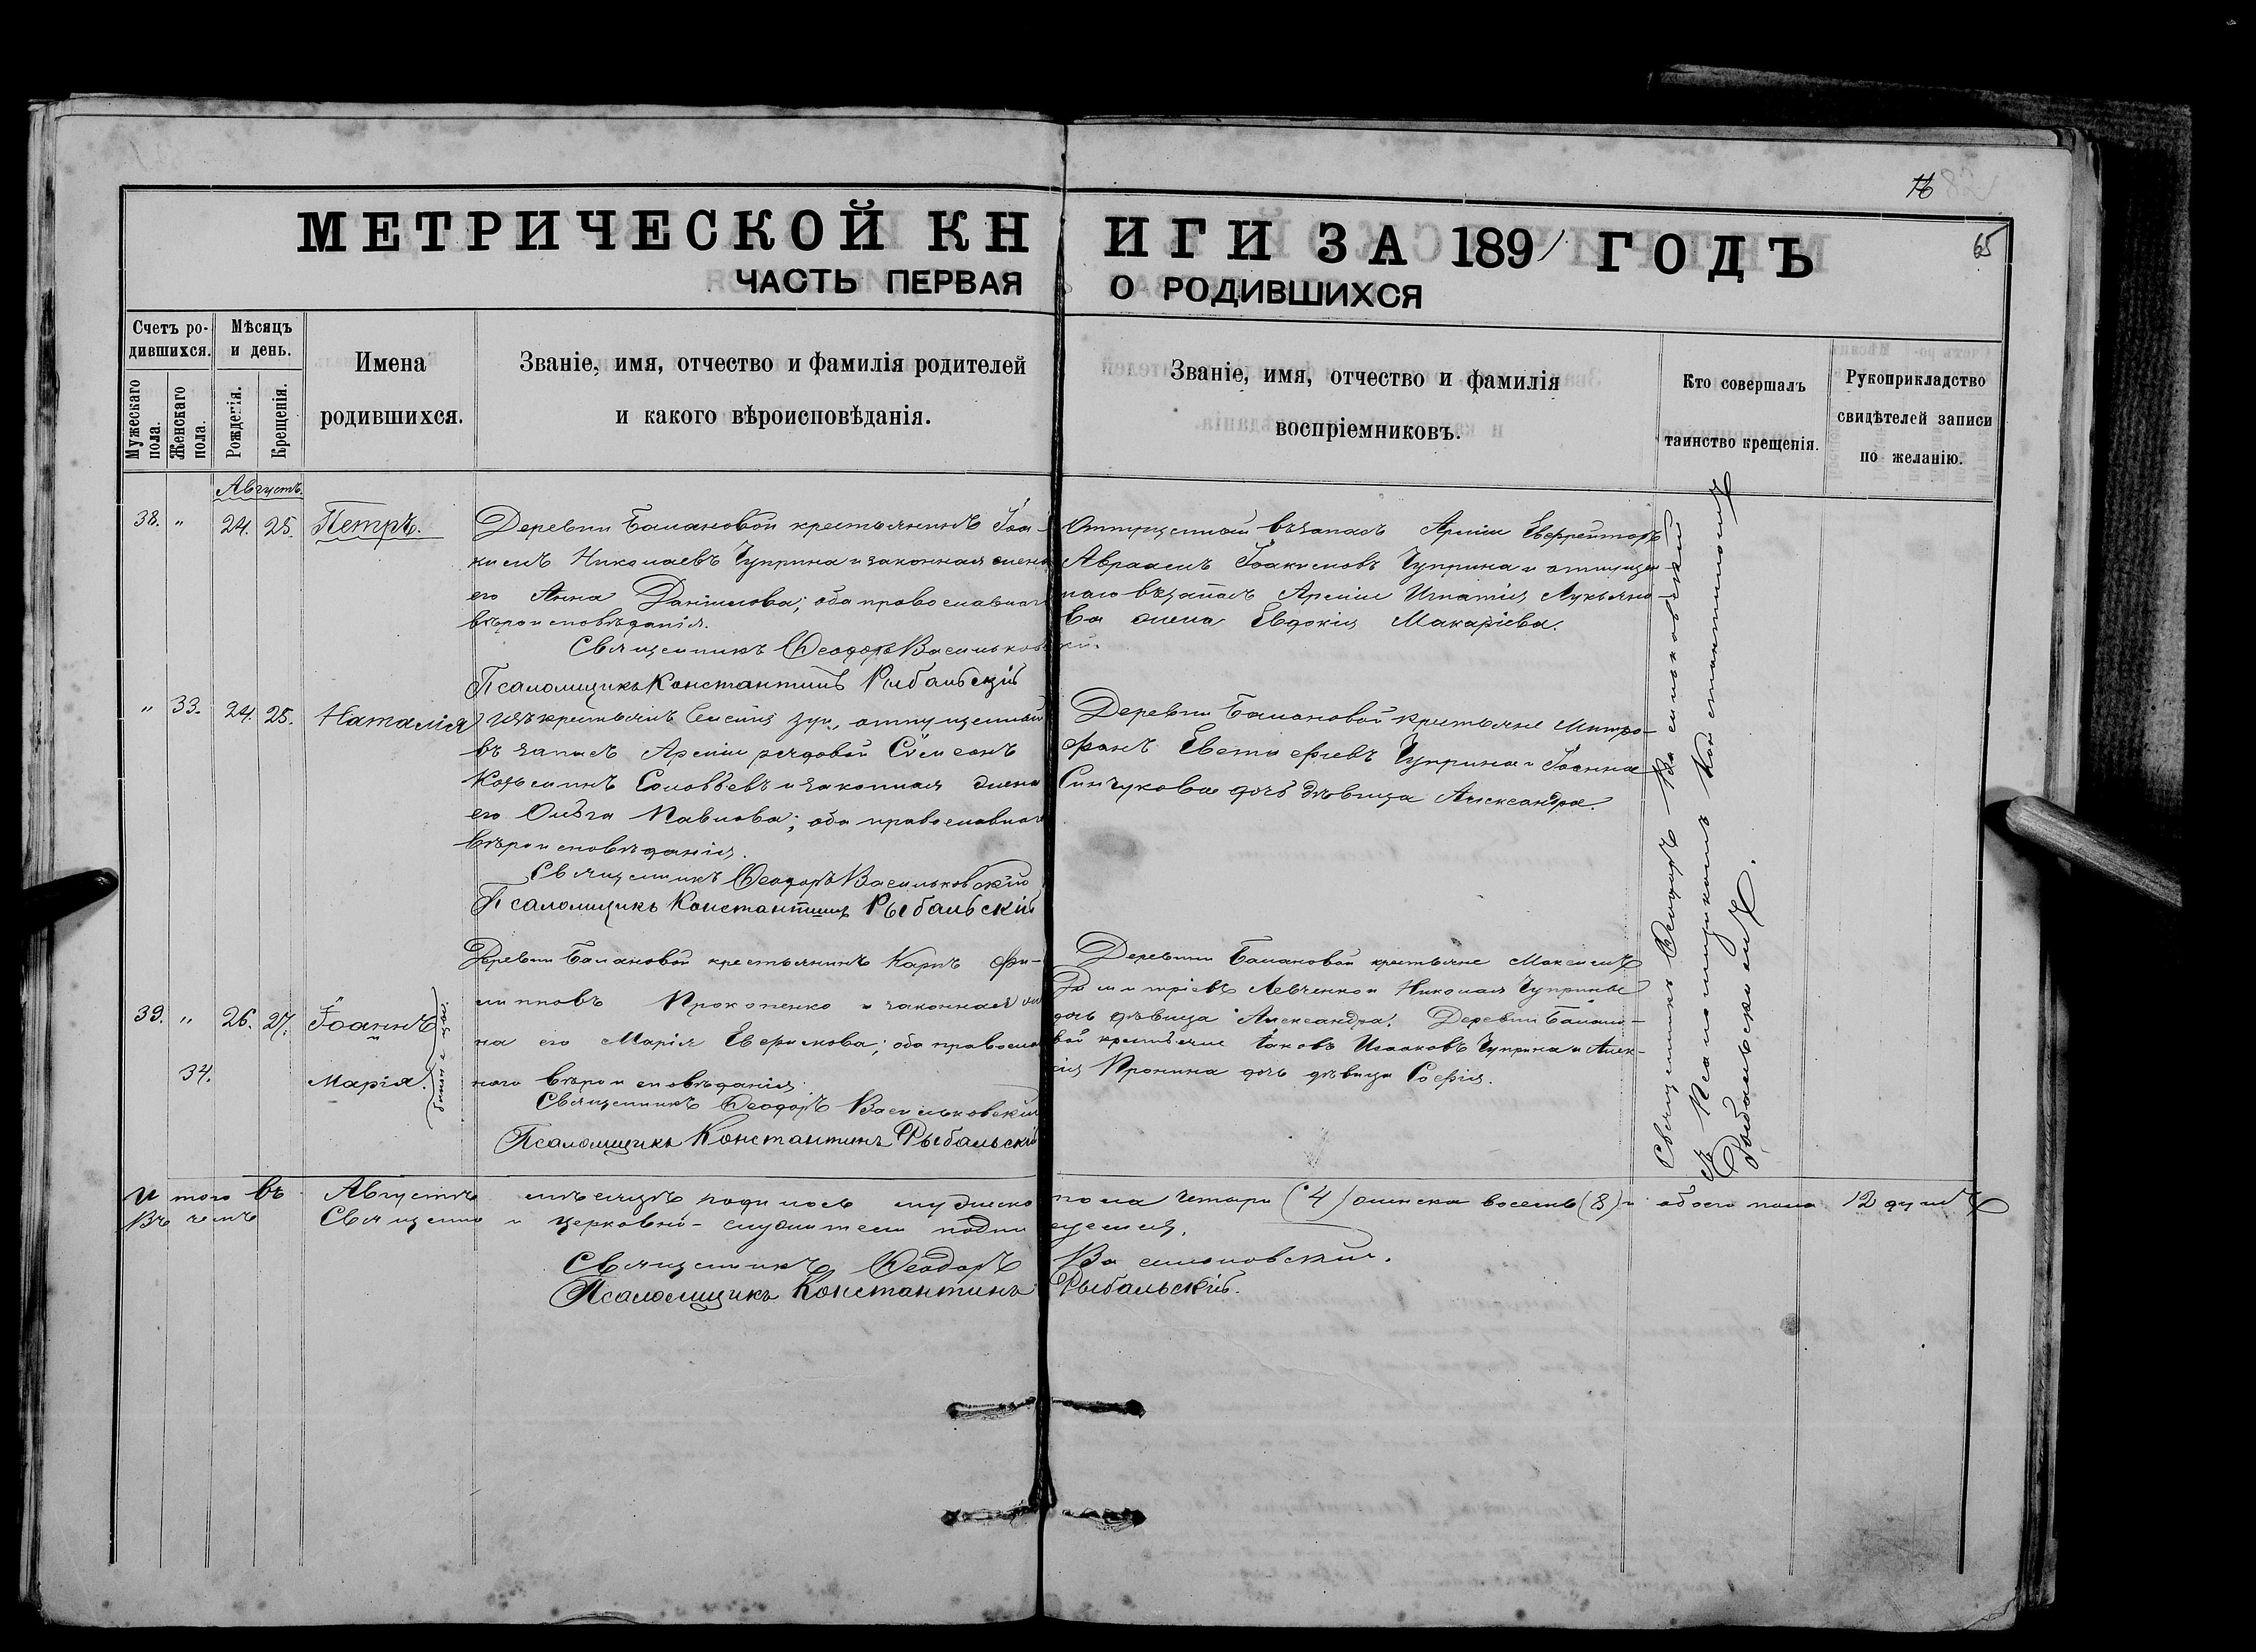 65
МЕТРИЧЕСКОЙ КНИГИ ЗА 1891 ГОДЪ
ЧАСТЬ ПЕРВАЯ О РОДИВШИХСЯ
Счетъ ро-
дившихся.
Мужескаго
пола.
Женскаго
пола.
Мѣсяцъ
и день.
Рожденія.
Крещенія.
Имена
родившихся.
Званіе, имя, отчество и фамилія родителей
и какого вѣроисповѣданія.
Званіе, имя, отчество и фамилія
воспріемниковъ.
Кто совершалъ
таинство крещенія.
Рукоприкладство
свидѣтелей записи
по желанію.
Августъ.
38. " 24. 25. Петръ.
Деревни Балановой крестьянинъ Іоа-
кимъ Николаевъ Чуприна и законная жена
его Анна Даніилова; оба православнаго
вѣроисповѣданія.
Священникъ Ѳеодоръ Васильковскій.
Псаломщикъ Константинъ Рыбальскій
Отпущенный въ запасъ Арміи Ефрейторъ
Авраамъ Іоакимовъ Чуприна и отпущен-
наго въ запасъ Арміи Игнатія Лукьяно-
ва жена Евдокія Макаріева.
" 33. 24. 25. Наталія
Изъ крестьянъ отпущенный
въ запасъ Арміи рядовой Сѷмеонъ
Козьминъ Соловьевъ и законная жена
его Ольга Павлова; оба православнаго
вѣроисповѣданія.
Священникъ Ѳеодоръ Васильковскій
Псаломщикъ Константинъ Рыбальскій
Деревни Балановой крестьяне Митро-
фанъ Евстафіевъ Чуприна и Іоанна
Синчукова дочь дѣвица Александра.
39. " 26. 27. Іоаннъ
34. Марія.
близнецы.
Деревни Балановой крестьянинъ Карпъ Фи-
липповъ Прокопенко и законная же-
на его Марія Ефимова; оба православ-
наго вѣроисповѣданія.
Священникъ Ѳеодоръ Васильковскій
Псаломщикъ Константинъ Рыбальскій
Деревни Балановой крестьяне Максимъ
Димитріевъ Левченко и Николая Чуприны
дочь дѣвица Александра. Деревни Балано-
вой крестьяне Іаковъ Исааковъ Чуприна и Алек-
сія Пронина дочь дѣвица Софія.
Священникъ Ѳеодоръ Васильковскій
съ Псаломщикомъ Константиномъ
Рыбальскимъ.
Итого въ Августѣ мѣсяцѣ родилось мужеска пола четыри (4) женска восемь (8) и обоего пола 12 душъ
Въ чемъ Священно и церковно-служители подписуемся.
Священникъ Ѳеодоръ Васильковскій.
Псаломщикъ Константинъ Рыбальскій.